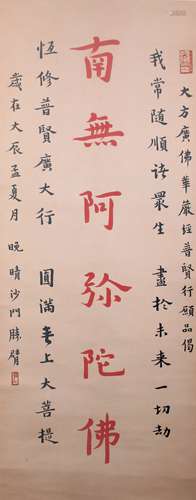 大方廣佛華嚴經普賢行願品偈
我常隨順諸眾生 盡於未來一切劫
南無阿彌陀佛
恆修普賢廣大行 圓滿無上大菩提
歲在大辰孟夏月 晚晴沙門勝臂